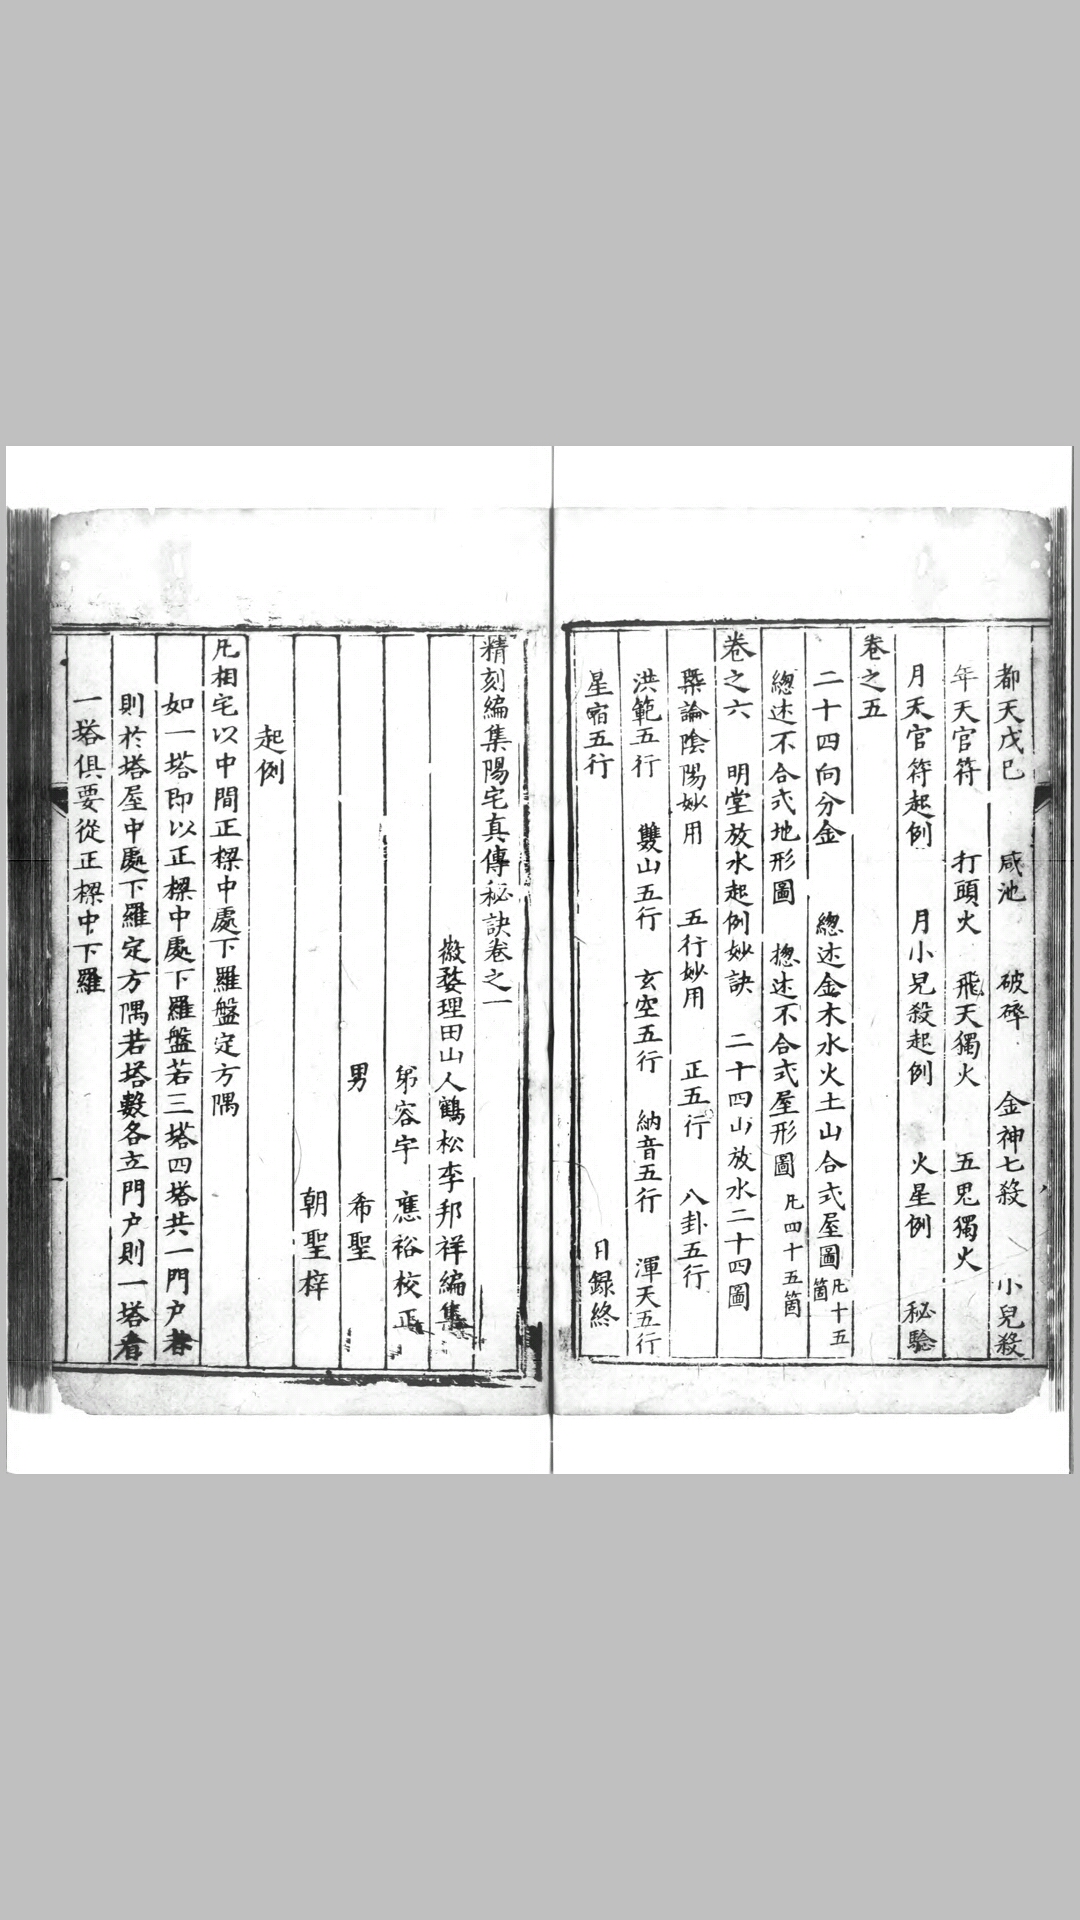 都天戊巳 咸池 破碎 金神七殺 小兒殺
年天官符 打頭火 飛天獨火 五鬼獨火
月天官符起例 月小兒殺起例 火星例 秘驗
卷之五
二十四向分金 總述金木水火土山合式屋圖 凡十五箇
總述不合式地形圖 摠述不合式屋形圖 凡四十五箇
卷之六 明堂放水起例妙訣 二十四山放水二十四圖
槩論陰陽妙用 五行妙用 正五行 八卦五行
洪範五行 雙山五行 玄空五行 納音五行 渾天五行
星宿五行 目録終
精刻編集陽宅真傳秘訣卷之一
徽婺理田山人鶴松李邦祥編集
弟容宇 應裕校正
男 希聖
朝聖梓
起例
凡相宅以中間正樑中處下羅盤定方隅
如一塔即以正樑中處下羅盤若三塔四塔共一門户者
則於塔屋中處下羅定方隅若塔數各立門户則一塔者
一塔俱要從正樑中下羅